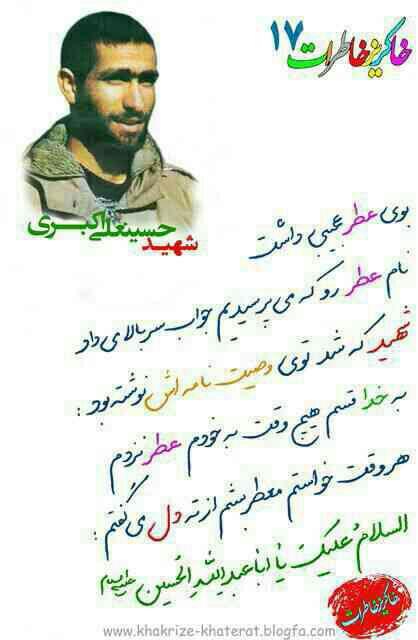 خاکریز خاطرات ۱۷
شهید حسینعلی اکبری
بوی عطر عجیبی داشت
نام عطر رو که می پرسیدیم جواب سربالا می داد
شهید که شد توی وصیت نامه اش نوشته بود :
به خدا قسم هیچ وقت به خودم عطر نزدم
هر وقت خواستم معطر بشم از ته دل می گفتم :
السلام علیک یا ابا عبدالله الحسین علیه السلام
خاکریز خاطرات
www.khakrize-khaterat.blogfa.com